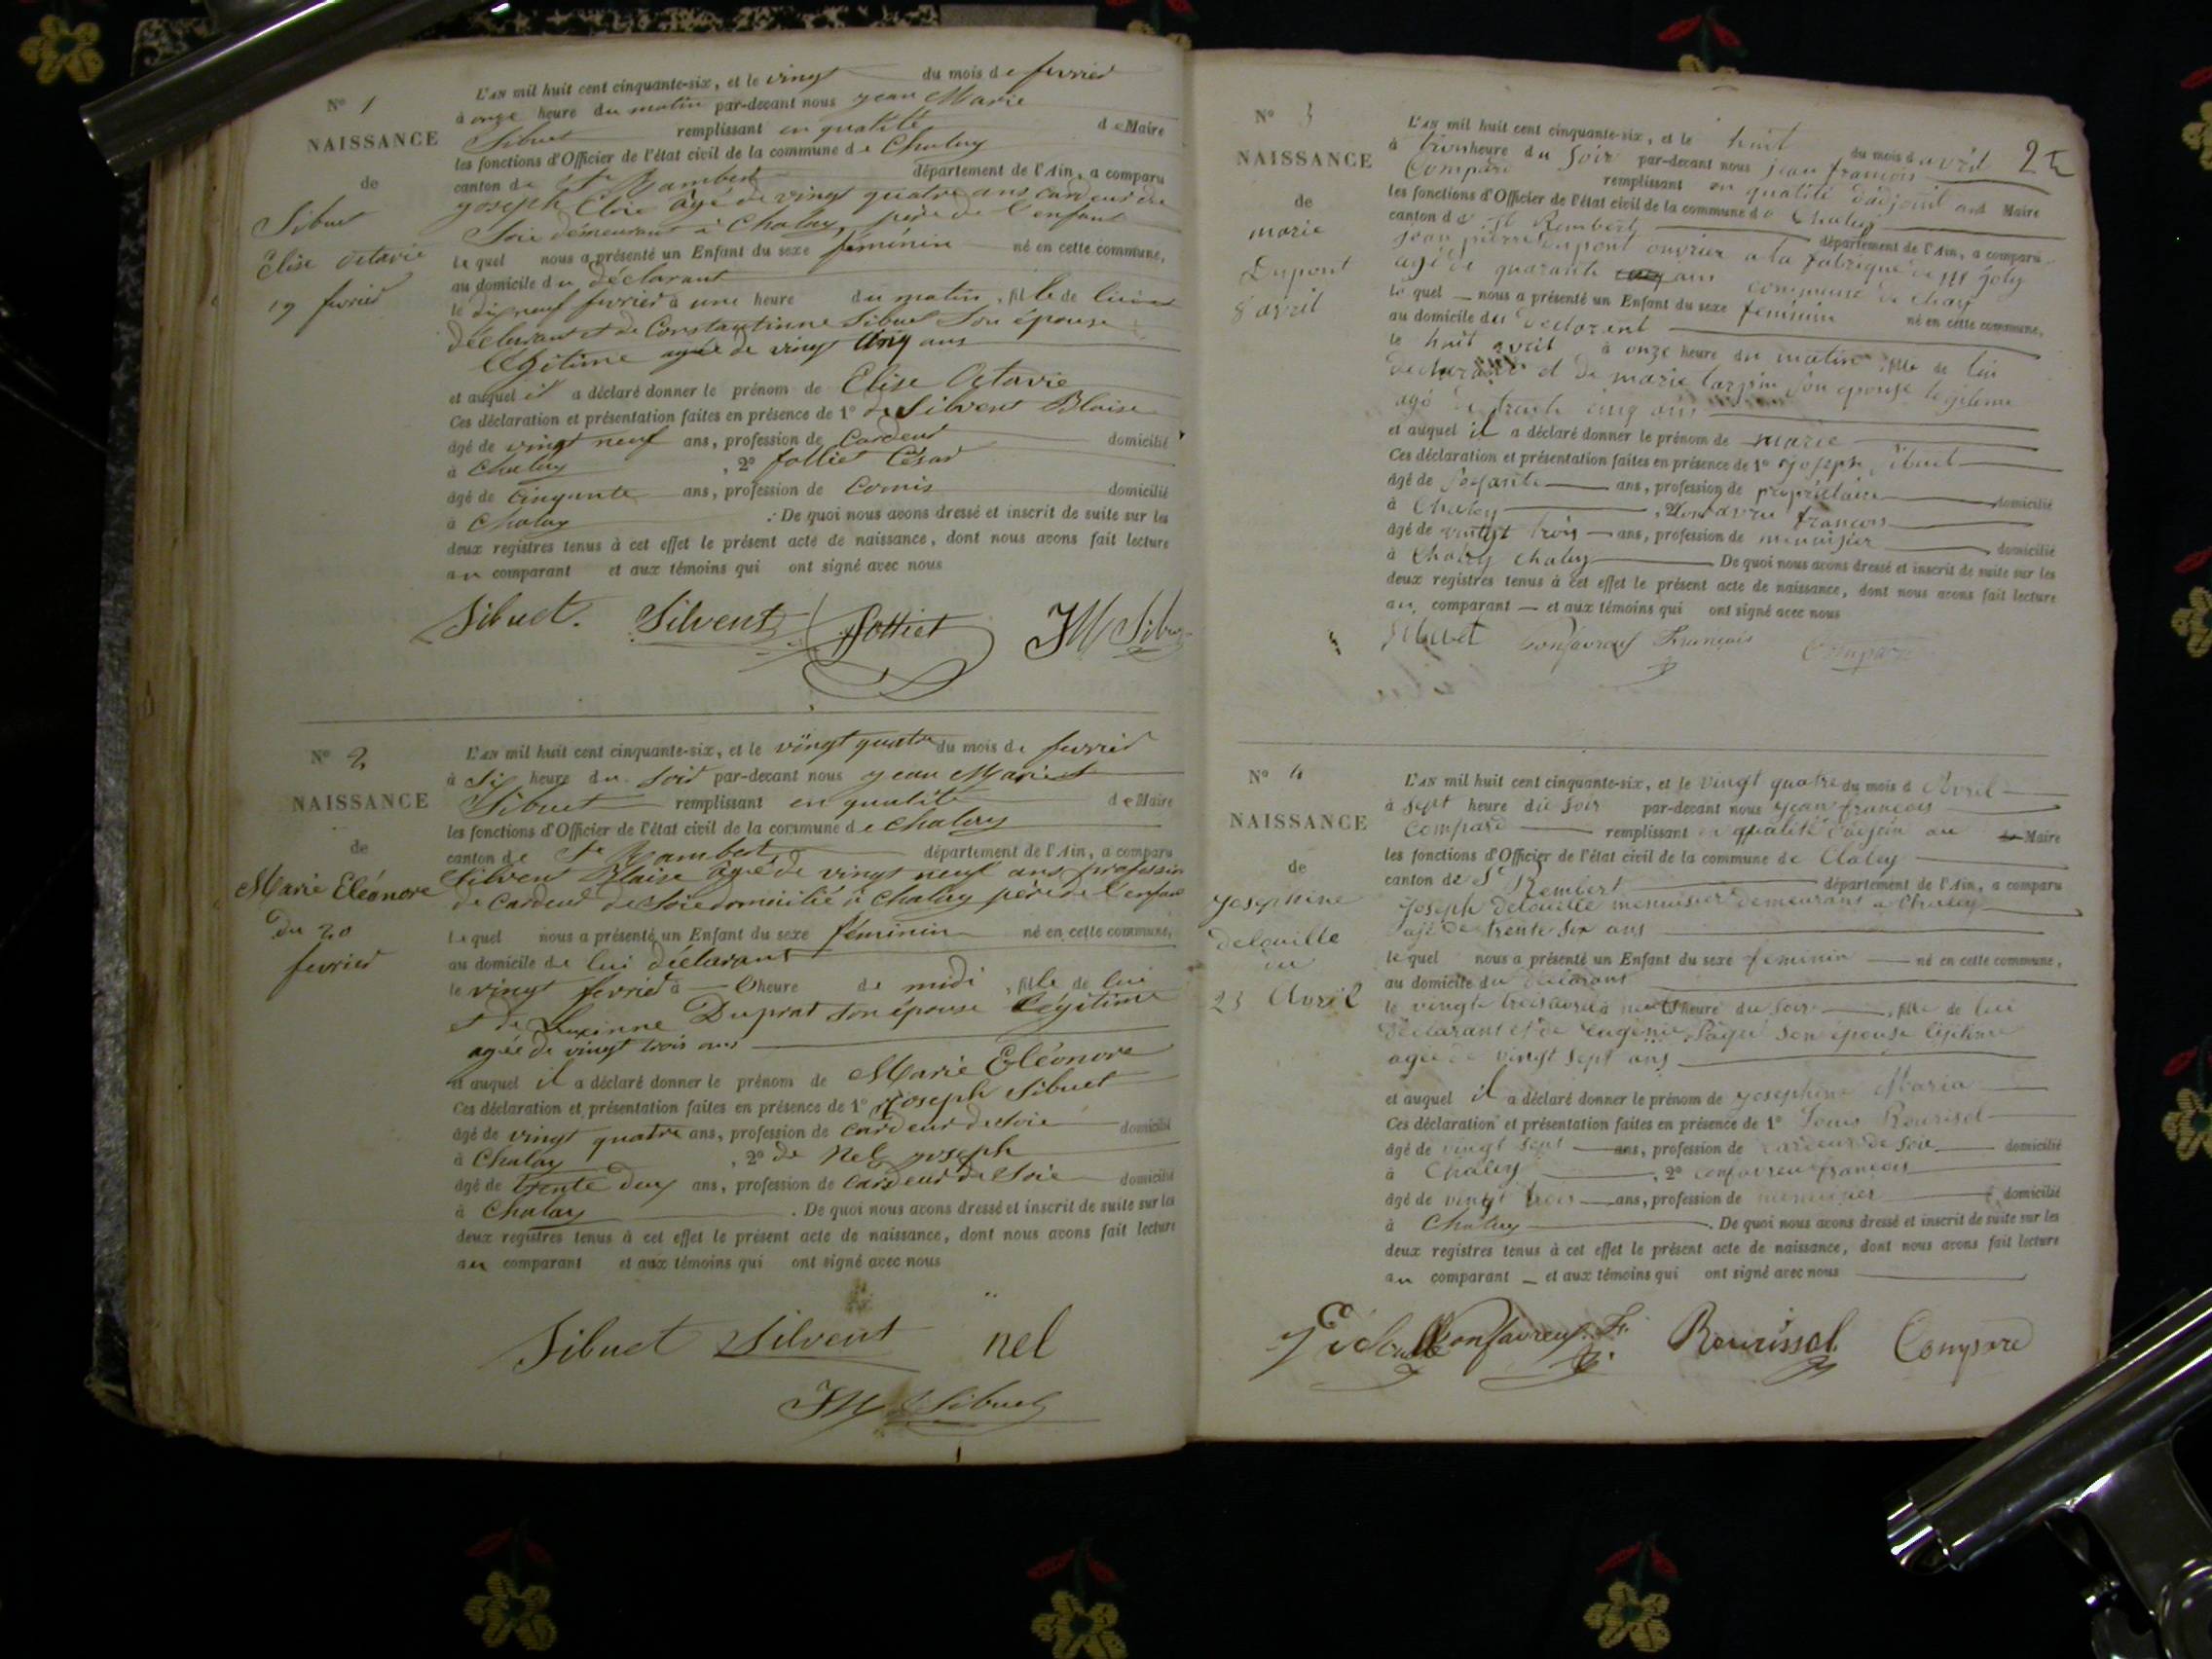 N° 1
NAISSANCE
de
Sibuet
Elise Octavie
19 fevrier
L'AN mil huit cent cinquante-six, et le vingt du mois de fevrier
à onze heure du matin par-devant nous jean Marie
Sibuet remplissant en qualité de Maire
les fonctions d'Officier de l'état civil de la commune de Chaley
canton de St Rambert département de l'Ain, a comparu
joseph Eloie agé de vingt quatre ans cardeur de
Soie demeurant à Chaley père de l'enfant
Lequel nous a présenté un Enfant du sexe féminin né en cette commune,
au domicile du déclarant
le dix neuf fevrier à une heure du matin, fille de lui
déclarant et de Constantinne Sibuet Son épouse
légitime agée de vingt cinq ans
et auquel il a déclaré donner le prénom de Elise Octavie
Ces déclaration et présentation faites en présence de 1° de Silvent Blaise
âgé de vingt neuf ans, profession de Cardeur domicilié
à Chaley , 2° Jolliet César
âgé de Cinquante ans, profession de Comis domicilié
à Chaley . De quoi nous avons dressé et inscrit de suite sur les
deux registres tenus à cet effet le présent acte de naissance, dont nous avons fait lecture
au comparant et aux témoins qui ont signé avec nous
Sibuet. Silvent Jolliet JM Sibuet
N° 2
NAISSANCE
de
Marie Eléonore
du 20
fevrier
L'AN mil huit cent cinquante-six, et le vingt quatre du mois de fevrier
à Six heure du Soir par-devant nous jean Marie
Sibuet remplissant en qualité de Maire
les fonctions d'Officier de l'état civil de la commune de Chaley
canton de St Rambert département de l'Ain, a comparu
Silvent Blaise agé de vingt neuf ans profession
de Cardeur de Soie domicilié à Chaley père de l'enfant
Lequel nous a présenté un Enfant du sexe féminin né en cette commune,
au domicile de lui déclarant
le vingt fevrier à heure de midi, fille de lui
et de Duprat son épouse légitime
agée de vingt trois ans
et auquel il a déclaré donner le prénom de Marie Eléonore
Ces déclaration et présentation faites en présence de 1° Joseph Sibuet
âgé de vingt quatre ans, profession de Cardeur de Soie domicilié
à Chaley , 2° de Nel joseph
âgé de trente deux ans, profession de Cardeur de Soie domicilié
à Chaley . De quoi nous avons dressé et inscrit de suite sur les
deux registres tenus à cet effet le présent acte de naissance, dont nous avons fait lecture
au comparant et aux témoins qui ont signé avec nous
Sibuet Silvent nel
JM Sibuet
2
N° 3
NAISSANCE
de
marie
Dupont
8 avril
L'AN mil huit cent cinquante-six, et le huit du mois d avril
à trois heure du Soir par-devant nous jean françois
Compare remplissant en qualité d'adjoint au Maire
les fonctions d'Officier de l'état civil de la commune de Chaley
canton de St Rambert département de l'Ain, a comparu
jean pierre Dupont ouvrier a la fabrique de M joly
agé de quarante ans commune de Chaley
Lequel nous a présenté un Enfant du sexe feminin né en cette commune,
au domicile du declarant
le huit avril à onze heure du matin, fille de lui
declarant et de marie tarpin son epouse legitime
agé de trente cinq ans
et auquel il a déclaré donner le prénom de marie
Ces déclaration et présentation faites en présence de 1° joseph Sibuet
âgé de Soixante ans, profession de propriétaire domicilié
à Chaley , 2° françois
âgé de vingt trois ans, profession de menuisier domicilié
à Chaley Chaley De quoi nous avons dressé et inscrit de suite sur les
deux registres tenus à cet effet le présent acte de naissance, dont nous avons fait lecture
au comparant et aux témoins qui ont signé avec nous
Sibuet Confavreux François Compare
N° 4
NAISSANCE
de
josephine
delouille
du
23 Avril
L'AN mil huit cent cinquante-six, et le vingt quatre du mois d Avril
à sept heure du soir par-devant nous jean françois
Compare remplissant en qualité d'adjoin au Maire
les fonctions d'Officier de l'état civil de la commune de Chaley
canton de St Rembert département de l'Ain, a comparu
joseph delouille menuisier demeurant a Chaley
agé de trente six ans
lequel nous a présenté un Enfant du sexe feminin né en cette commune,
au domicile du déclarant
le vingt trois avril à neuf heure du soir, fille de lui
déclarant et de eugénie son épouse légitime
agée de vingt sept ans
et auquel il a déclaré donner le prénom de josephine Maria
Ces déclaration et présentation faites en présence de 1° Louis Rourissol
âgé de vingt sept ans, profession de cardeur de soie domicilié
à Chaley , 2° confavreux francois
âgé de vingt trois ans, profession de menuisier domicilié
à Chaley De quoi nous avons dressé et inscrit de suite sur les
deux registres tenus à cet effet le présent acte de naissance, dont nous avons fait lecture
au comparant et aux témoins qui ont signé avec nous
Confavreux. Fr. Rourissol Compare